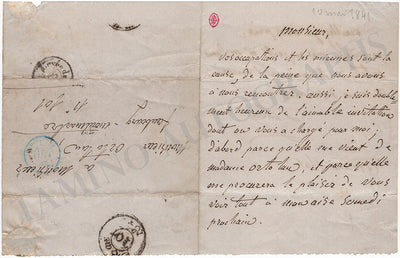 10 mai 1841
Monsieur,
vos occupations et les miennes sont la
cause, de la peine que nous avons
à nous rencontrer. aussi, je suis double
ment heureux de l'aimable invitation
dont on vous a chargé pour moi,
d'abord parce qu'elle me vient de
madame Ortolan, et parce qu'elle
me procurera le plaisir de vous
voir tout à mon aise Samedi
prochain.
à Monsieur
Monsieur Ortolan
faubourg montmartre
N°
TAMINO AUTOGRAPHS